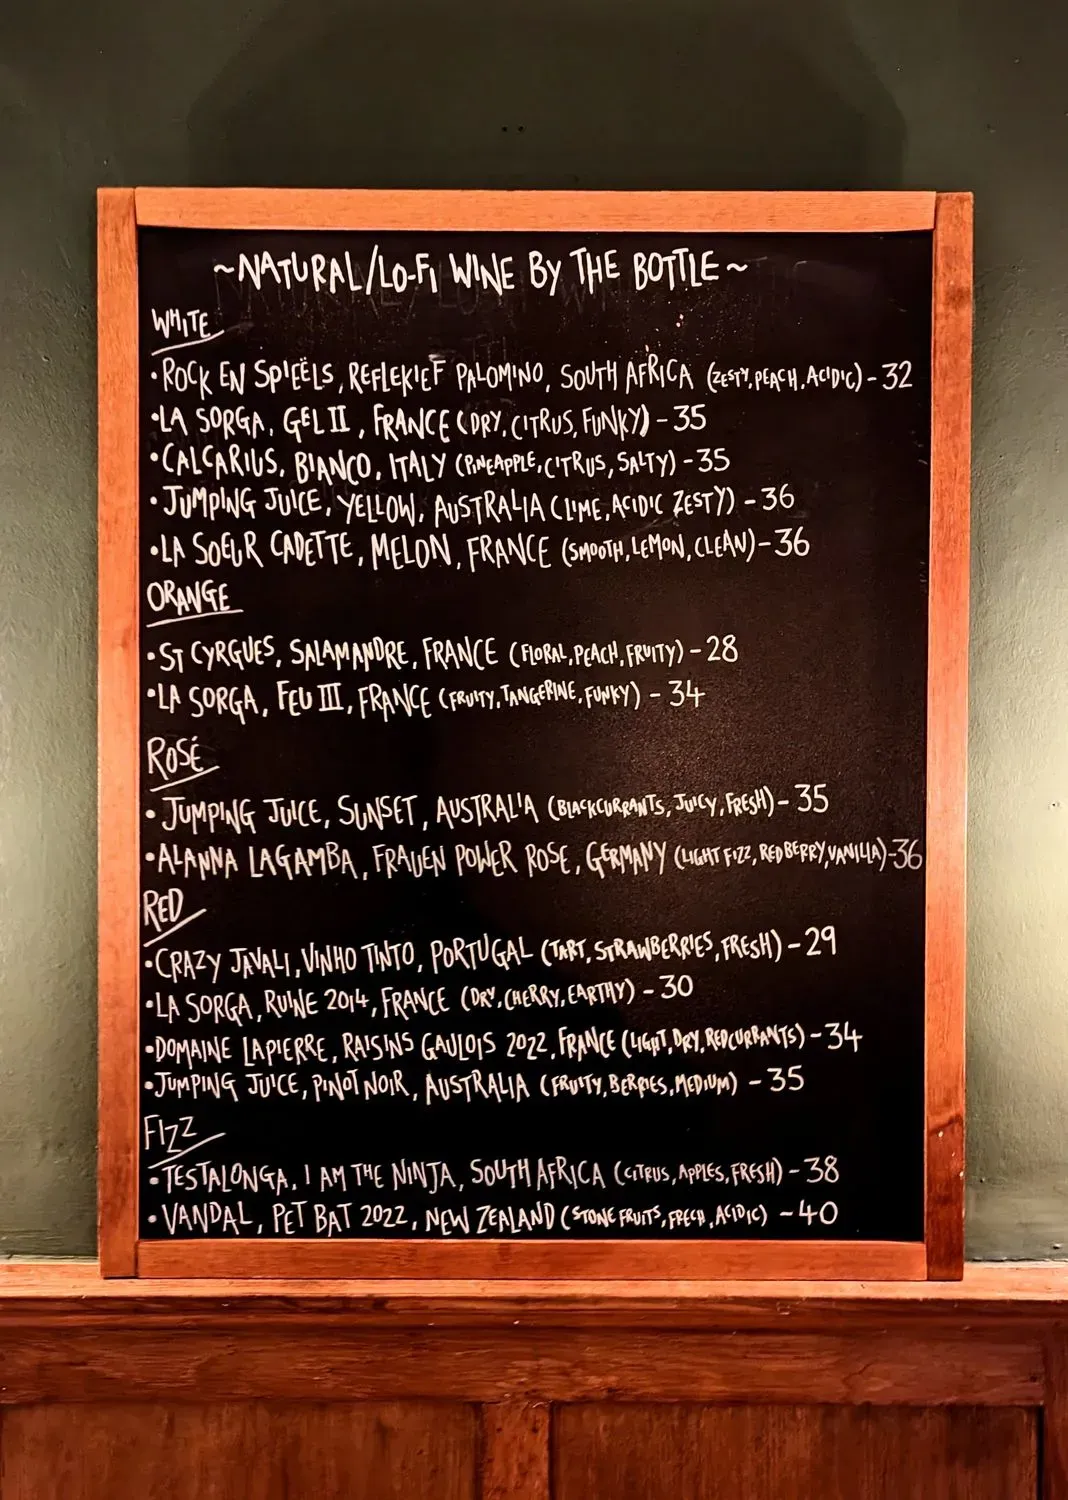 ~NATURAL/LO-FI WINE BY THE BOTTLE~
WHITE
•ROCK EN SPIEËLS, REFLEKIEF PALOMINO, SOUTH AFRICA (ZESTY, PEACH, ACIDIC) - 32
•LA SORGA, GEL II, FRANCE (DRY, CITRUS, FUNKY) - 35
•CALCARIUS, BIANCO, ITALY (PINEAPPLE, CITRUS, SALTY) - 35
•JUMPING JUICE, YELLOW, AUSTRALIA (LIME, ACIDIC ZESTY) - 36
•LA SOEUR CADETTE, MELON, FRANCE (SMOOTH, LEMON, CLEAN) - 36
ORANGE
•ST CYRGUES, SALAMANDRE, FRANCE (FLORAL, PEACH, FRUITY) - 28
•LA SORGA, FEU III, FRANCE (FRUITY, TANGERINE, FUNKY) - 34
ROSÉ
•JUMPING JUICE, SUNSET, AUSTRALIA (BLACKCURRANTS, JUICY, FRESH) - 35
•ALANNA LAGAMBA, FRAUEN POWER ROSE, GERMANY (LIGHT FIZZ, RED BERRY, VANILLA) - 36
RED
•CRAZY JAVALI, VINHO TINTO, PORTUGAL (TART, STRAWBERRIES, FRESH) - 29
•LA SORGA, RUINE 2014, FRANCE (DRY, CHERRY, EARTHY) - 30
•DOMAINE LAPIERRE, RAISINS GAULOIS 2022, FRANCE (LIGHT, DRY, REDCURRANTS) - 34
•JUMPING JUICE, PINOT NOIR, AUSTRALIA (FRUITY, BERRIES, MEDIUM) - 35
FIZZ
•TESTALONGA, I AM THE NINJA, SOUTH AFRICA (CITRUS, APPLES, FRESH) - 38
•VANDAL, PET BAT 2022, NEW ZEALAND (STONE FRUITS, FRECH, ACIDIC) - 40